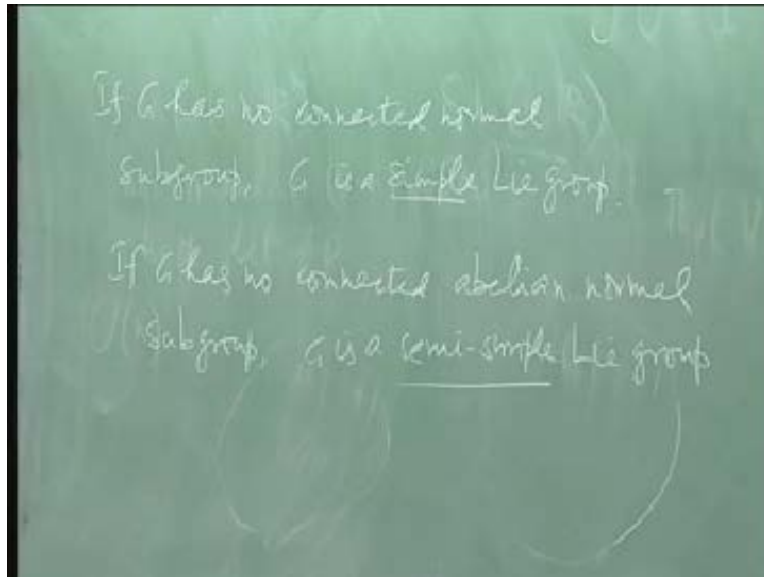 If G has no connected normal
subgroup, G is a simple Lie group.
If G has no connected abelian normal
subgroup, G is a semi-simple Lie group